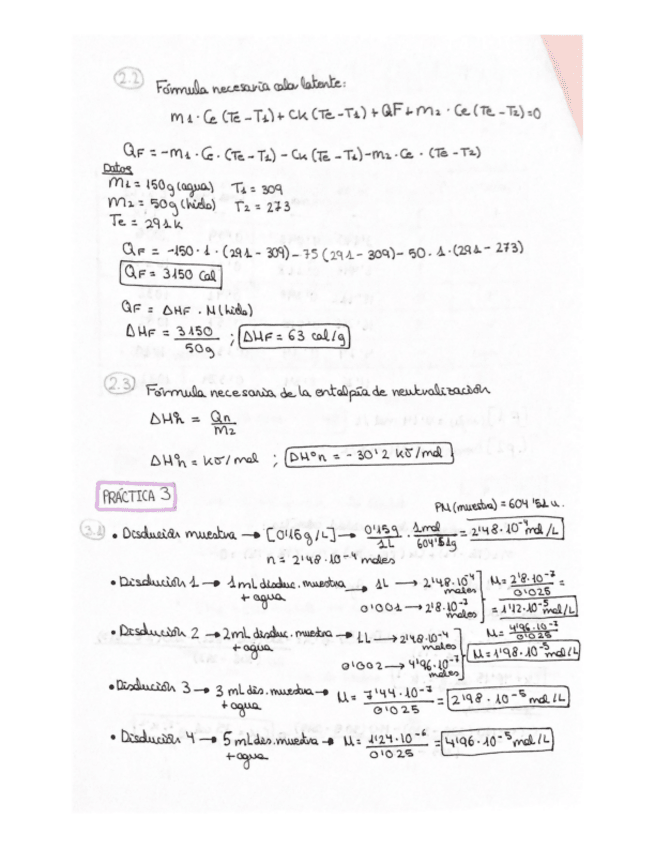 2.2 Fórmula necesaria calor latente:
m1 · Ce (Te - T1) + CK (Te - T1) + QF + m2 · Ce (Te - T2) = 0
QF = -m1 · Ce · (Te - T1) - CK (Te - T1) - m2 · Ce · (Te - T2)
Datos
M1 = 150g (agua) T1 = 309
M2 = 50g (hielo) T2 = 273
Te = 291 K
QF = -150 · 1 · (291 - 309) - 75 (291 - 309) - 50 · 1 · (291 - 273)
QF = 3150 Cal
QF = ΔHF · M (hielo)
ΔHF = 3150 / 50g ; ΔHF = 63 cal/g
2.3 Fórmula necesaria de la entalpía de neutralización
ΔHºn = Qn / M2
ΔHºn = KJ/mol ; ΔHºn = -30'2 KJ/mol
PRÁCTICA 3
PM (muestra) = 604'51 u.
3.1 • Disolución muestra → [0'15 g/L] → 0'15g / 1L · 1mol / 604'51g = 2'48·10⁻⁴ mol/L
n = 2'48·10⁻⁴ moles
• Disolución 1 → 1 mL disoluc. muestra + agua → 1L → 2'48·10⁻⁴ moles
0'001 → 2'8·10⁻⁷ moles
M = 2'8·10⁻⁷ / 0'025 = 1'12·10⁻⁵ mol/L
• Disolución 2 → 2 mL disoluc. muestra + agua → 1L → 2'48·10⁻⁴ moles
0'002 → 4'96·10⁻⁷ moles
M = 4'96·10⁻⁷ / 0'025
M = 1'98·10⁻⁵ mol/L
• Disolución 3 → 3 mL dis. muestra + agua → M = 7'44·10⁻⁷ / 0'025 = 2'98·10⁻⁵ mol/L
• Disolución 4 → 5 mL dis. muestra + agua → M = 1'24·10⁻⁶ / 0'025 = 4'96·10⁻⁵ mol/L